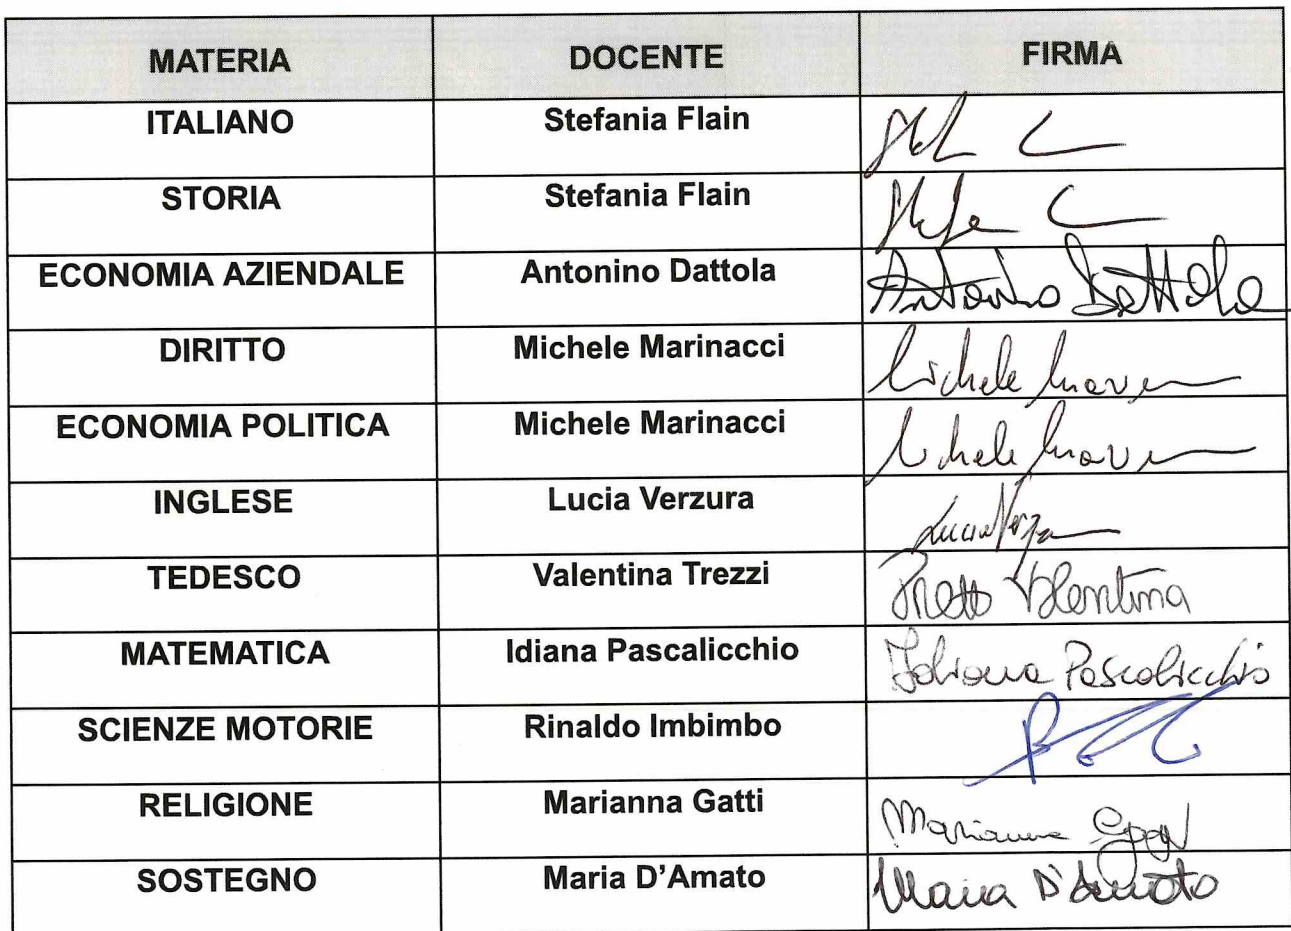 MATERIA DOCENTE FIRMA
ITALIANO Stefania Flain
STORIA Stefania Flain
ECONOMIA AZIENDALE Antonino Dattola Antonino Dattola
DIRITTO Michele Marinacci Michele
ECONOMIA POLITICA Michele Marinacci Michele
INGLESE Lucia Verzura Lucia
TEDESCO Valentina Trezzi Valentina
MATEMATICA Idiana Pascalicchio Idiana Pascalicchio
SCIENZE MOTORIE Rinaldo Imbimbo
RELIGIONE Marianna Gatti Marianna
SOSTEGNO Maria D'Amato Maria D'Amato